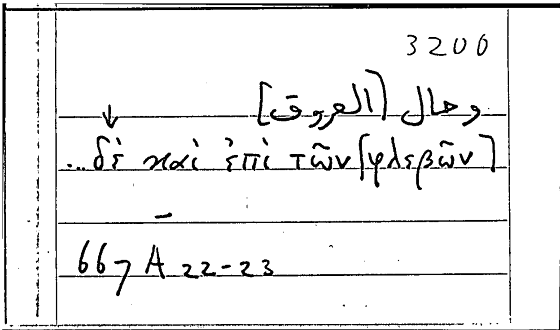 3200
وحال [العروق]
...δὲ καὶ ἐπὶ τῶν [φλεβῶν]
667 A 22-23